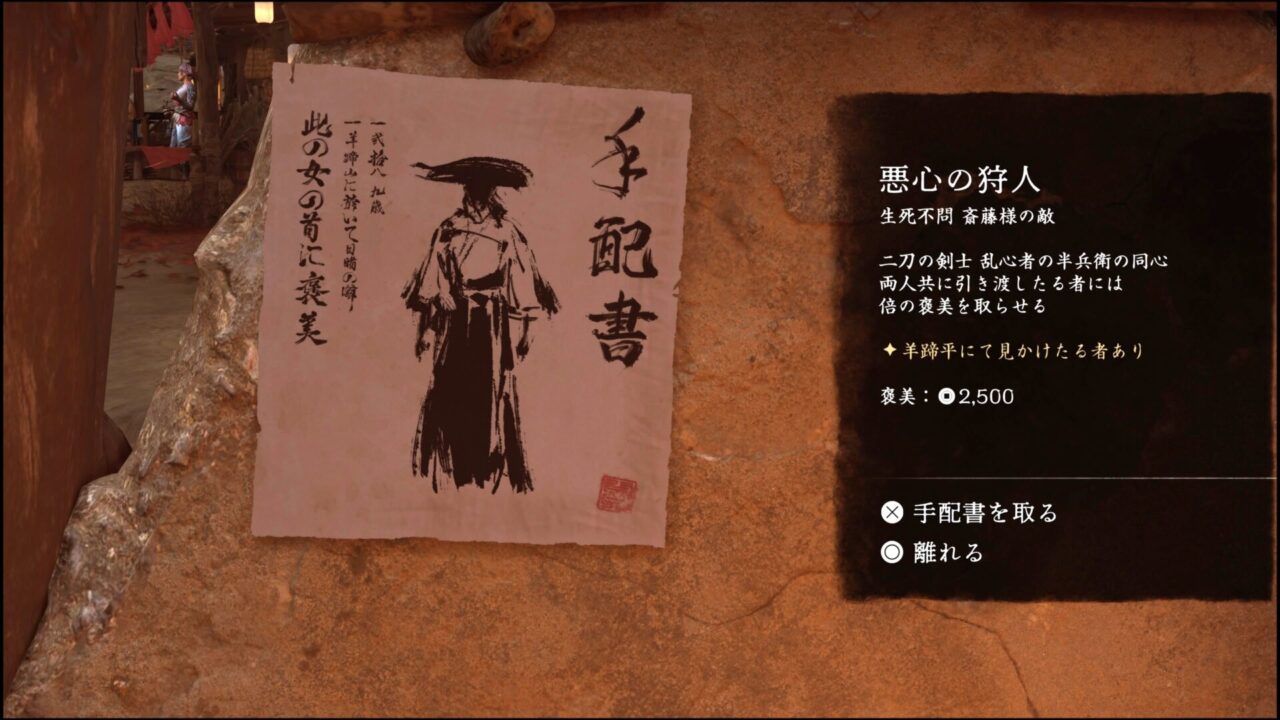 手配書
一 弐拾八 九歳
一 羊蹄山に於いて目睹
此の女の首に褒美
悪心の狩人
生死不問 斎藤様の敵
二刀の剣士 乱心者の半兵衛の同心
両人共に引き渡したる者には
倍の褒美を取らせる
羊蹄平にて見かけたる者あり
褒美：2,500
手配書を取る
離れる